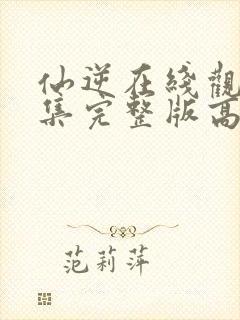 仙逆在綫觀
集完整版高
范莉萍